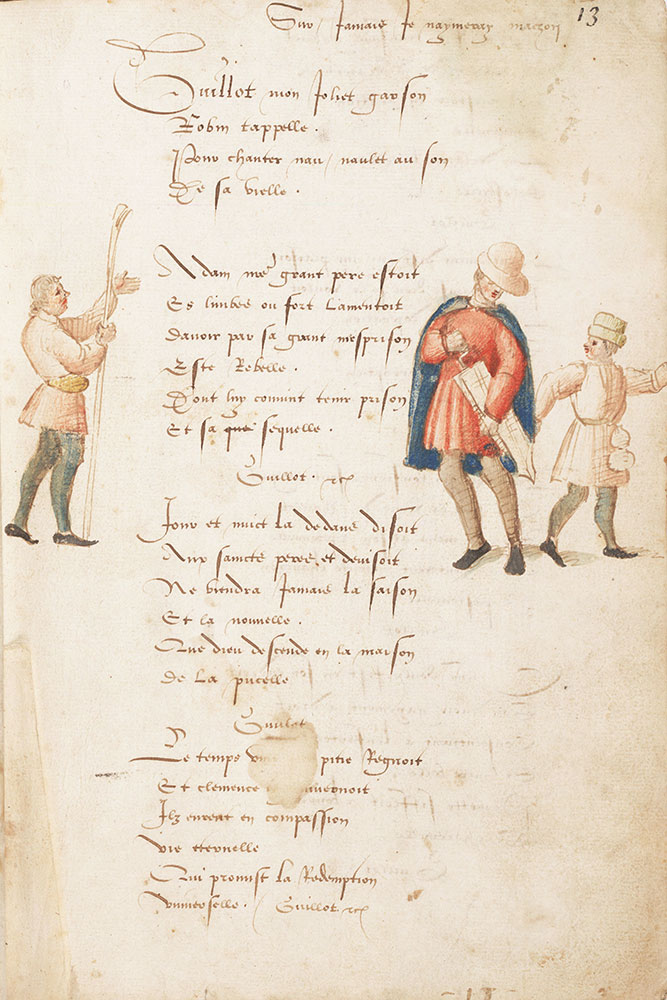 Sur / Jamais Je naymeray maczon
13
Guillot mon Joliet garson
Robin tappelle .
Pour chanter nau / naulet au son
De sa vielle .
Adam nre grant pere estoit
Es limbes ou fort Lamentoit
Davoir par sa grant mesprison
Este Rebelle .
Dont luy convint tenir prison
Et sa sequelle .
Guillot . etc
Jour et nuict La dedans disoit
Aux sainctz peres et devisoit
Ne viendra Jamais La saison
Et la nouvelle .
Que dieu descende en la maison
De La pucelle
Guillot
Le temps pitie Regnoit
Et clemence
Ilz eurent en compassion
vie eternelle
Qui promist La Redemption
universelle . / Guillot etc